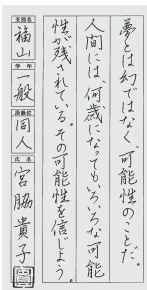 夢とは幻ではなく、可能性のことだ。
人間には、何歳になってもいろいろな可能
性が残されている。その可能性を信じよう。
支部名 福山 学年 一般 段級位 同人 氏名 宮脇貴子